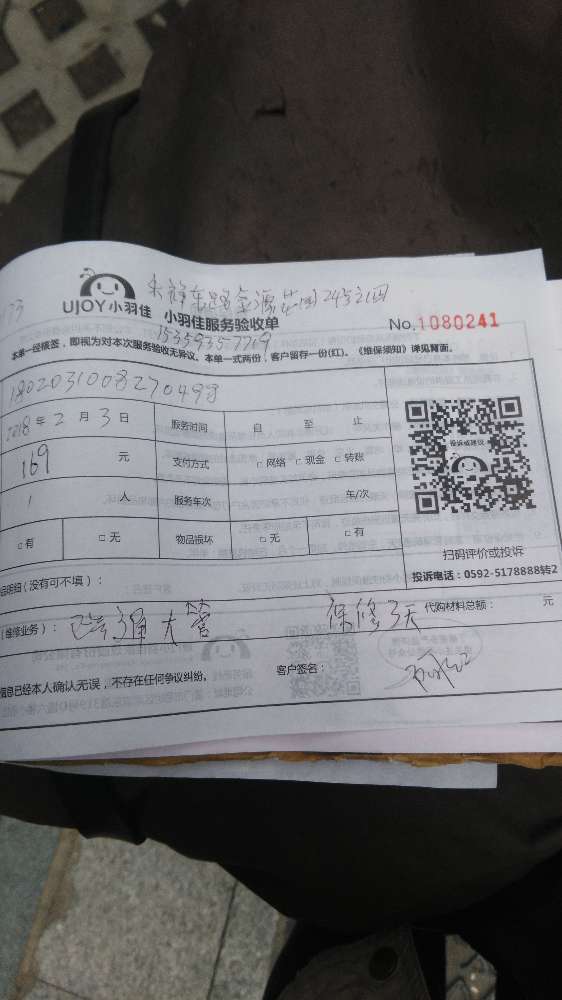 UJOY小羽佳 小羽佳服务验收单
No.1080241
15359357769
本单一经核签，即视为对本次服务验收无异议。本单一式两份，客户留存一份(红)。《维保须知》详见背面。
1802031008270498
2018年2月3日 服务时间 自 至 止
169 元 支付方式 □网络 □现金 □转账
1 人 服务车次 车/次
□有 □无 物品损坏 □无 □有
投诉或建议
扫码评价或投诉
投诉电话：0592-5178888转2
明细（没有可不填）：
（维修业务）： 疏通大管 保修3天 代购材料总额： 元
信息已经本人确认无误，不存在任何争议纠纷。 客户签名：